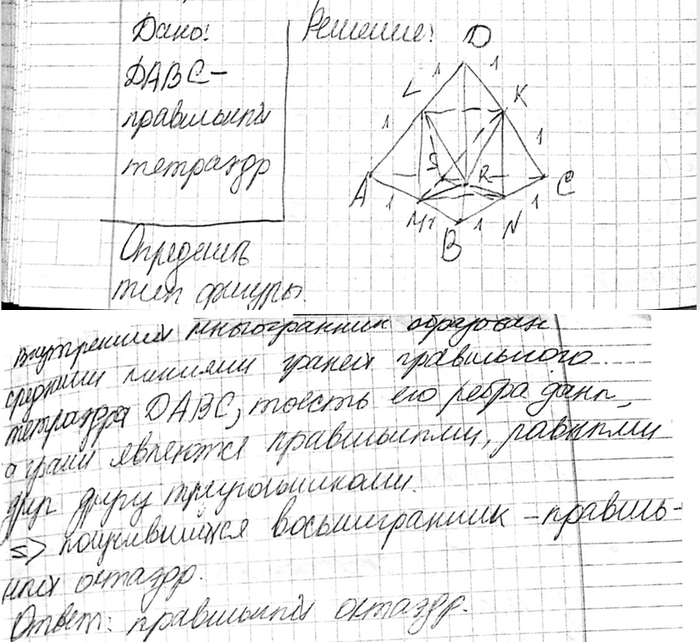 Дано:
DABC –
правильный
тетраэдр
Определить
тип фигуры.
Решение:
D
1 1
L K
1 1
S R
A C
1 M 1 N 1
B
внутренний многогранник образован
средними линиями граней правильного
тетраэдра DABC, тоесть его ребра
а грани являются правильными, равными
друг другу треугольниками.
=> получившийся восьмигранник – правиль-
ный октаэдр.
Ответ: правильный октаэдр.